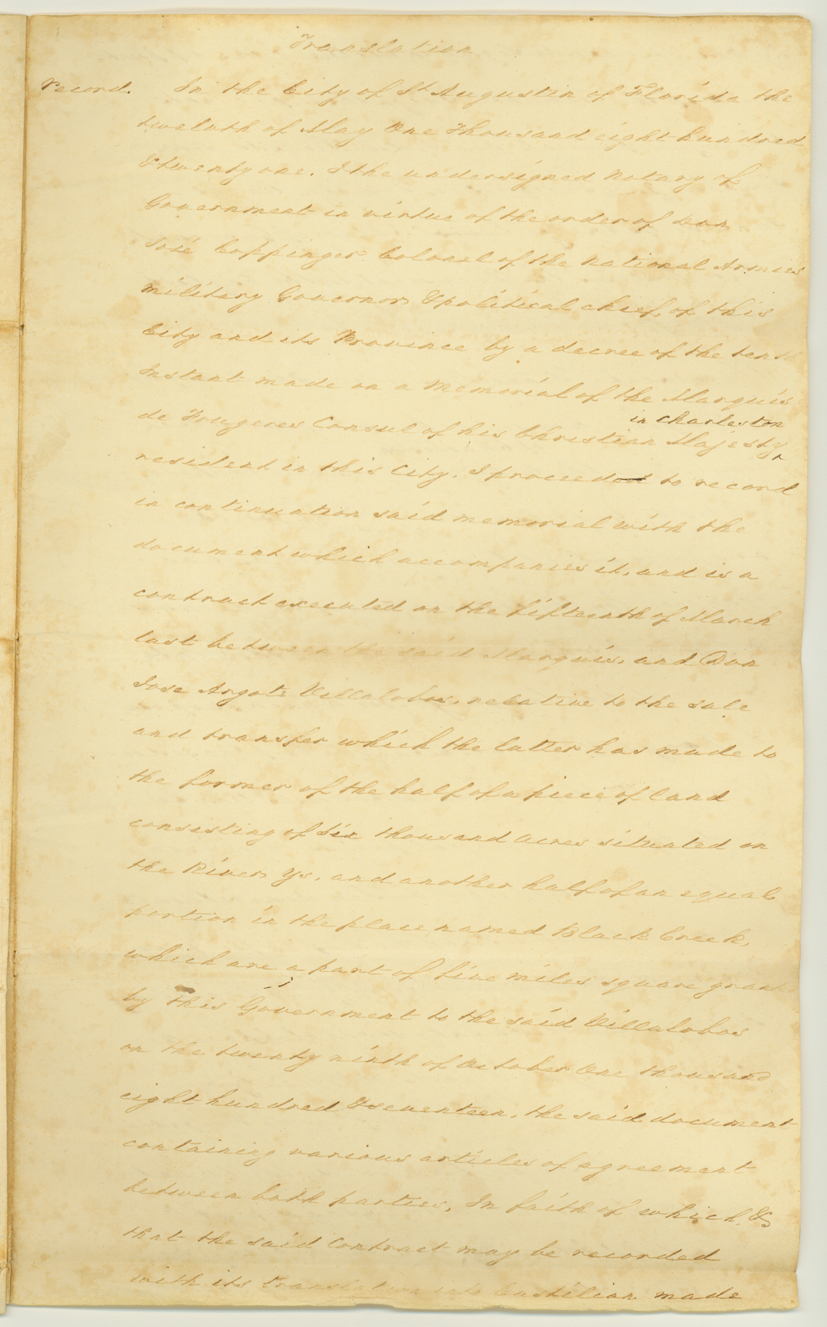 Translation
Record. In the City of St Augustin of Florida the
twelvth of May One Thousand eight hundred
& twenty one. I the undersigned Notary of
Government in virtue of the order of Don
José Coppinger Colonel of the National Armies
military Governor & political chief, of this
City and its Province by a decree of the tenth
Instant made on a Memorial of the Marquis
in Charleston
de Fougeres Consul of his Christian Majesty
resident in this City. I proceed to record
in continuation said memorial with the
document which accompanies it, and is a
contract executed on the fifteenth of March
last between the said Marquis, and Don
Jose Argote Villalobos, relative to the sale
and transfer which the latter has made to
the former of the half of a piece of land
consisting of Six thousand acres situated on
the River Ys, and another half of an equal
portion in the place named Black Creek,
which are a part of five miles square grant
by this Government to the said Villalobos
on the twenty ninth of October One thousand
eight hundred & seventeen, the said document
containing various articles of agreement
between both parties, In faith of which, &
that the said Contract may be recorded
with its Translation into Castilian made